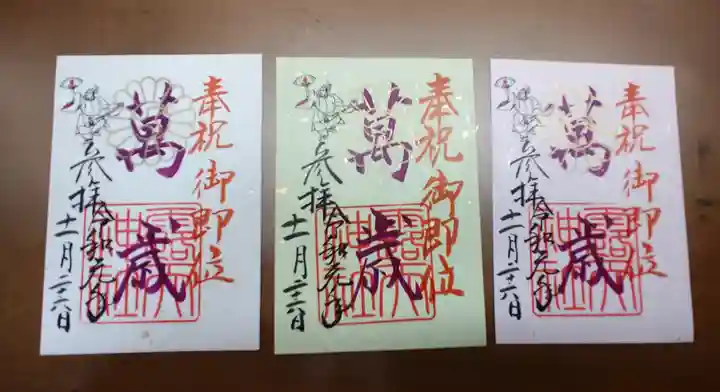 奉祝御即位
萬歳
令和元年
参拝
十一月二十六日
奉祝御即位
萬歳
令和元年
参拝
十一月二十六日
奉祝御即位
萬歳
令和元年
参拝
十一月二十六日